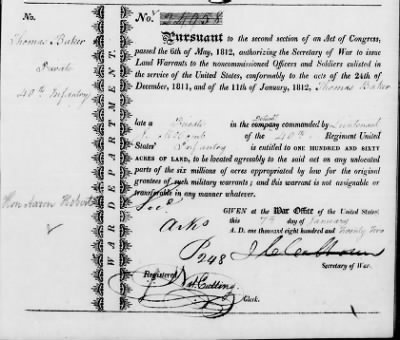 No.
Thomas Baker
Private
40th Infantry
Hon Aaron Hobart
WAR DEPARTMENT.
No. 24058
Pursuant to the second section of an Act of Congress,
passed the 6th of May, 1812, authorizing the Secretary of War to issue
Land Warrants to the noncommissioned Officers and Soldiers enlisted
in the service of the United States, conformably to the acts of the 24th of
December, 1811, and of the 11th of January, 1812, Thomas Baker
late a Private in the company commanded by Lieutenant
of the 40th Regiment United
States' Infantry is entitled to ONE HUNDRED AND SIXTY
ACRES OF LAND, to be located agreeably to the said act on any unlocated
parts of the six millions of acres appropriated by law for the original
grantees of such military warrants; and this warrant is not assignable or
transferable in any manner whatever.
GIVEN at the War Office of the United States
this 7th day of January
A. D. one thousand eight hundred and Twenty Two
Arks
P 248
J C Calhoun
Secretary of War.
Registered
Nat Cutting
Clerk.